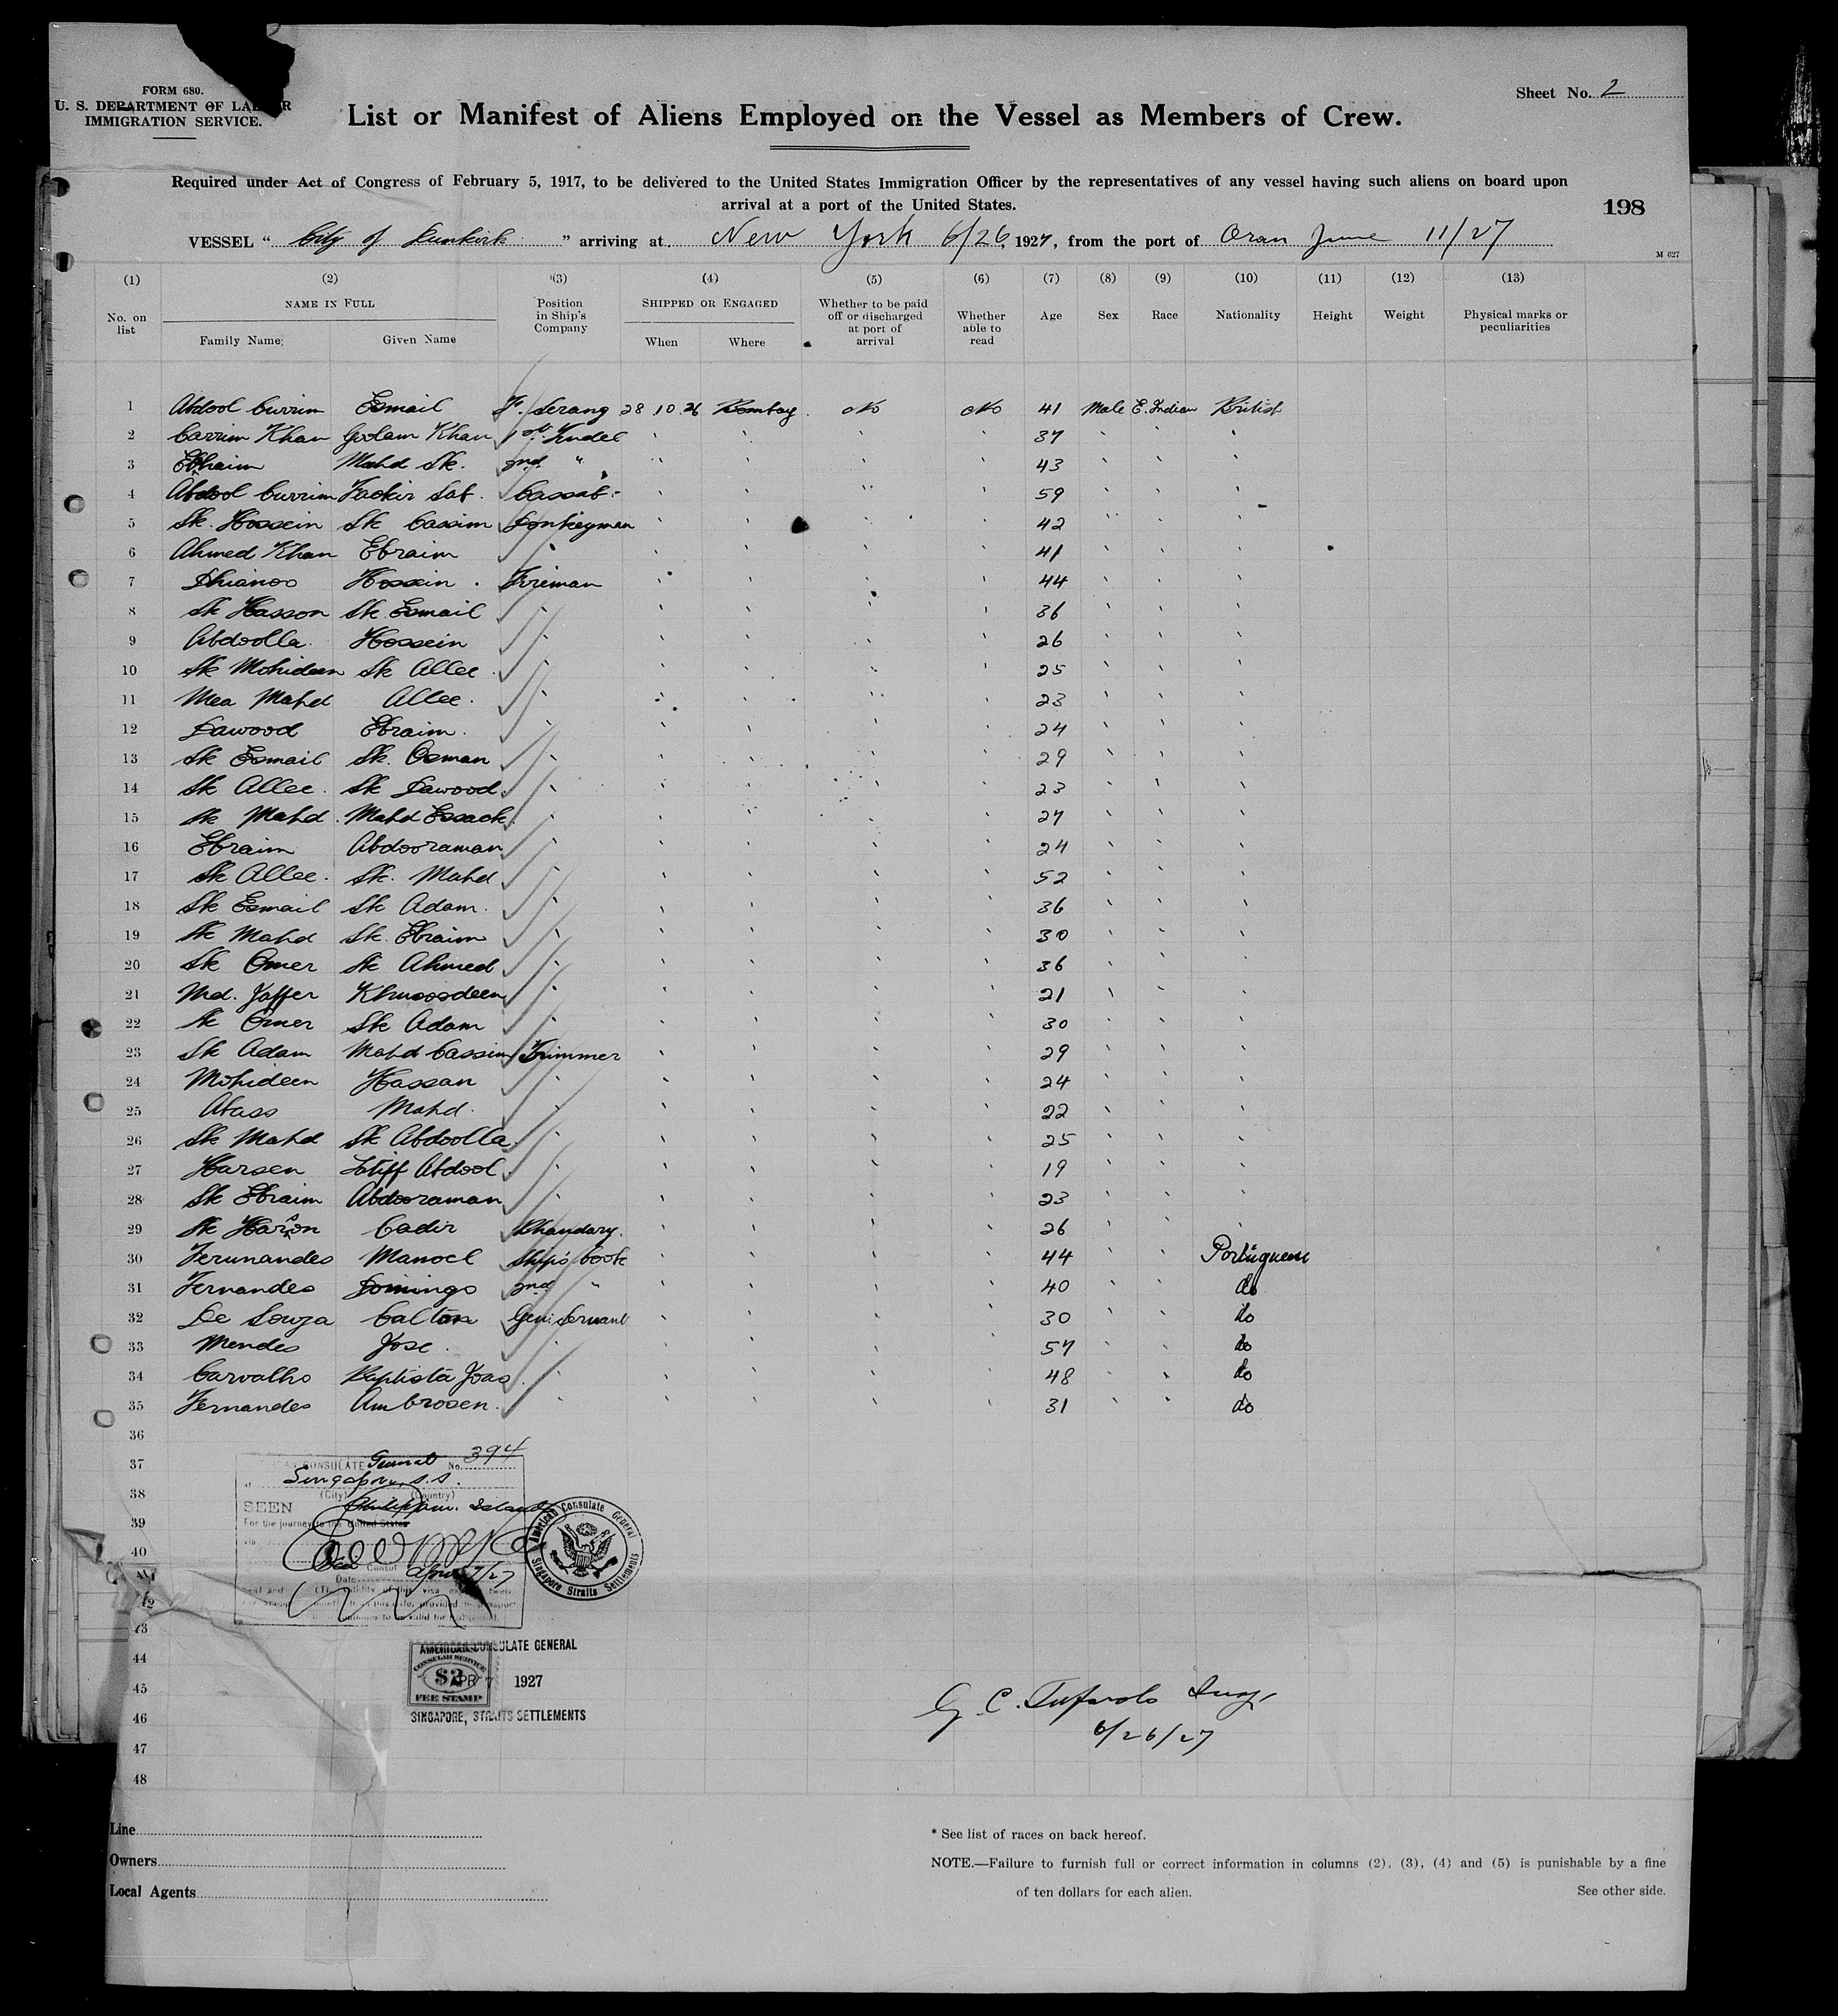 FORM 680.
U. S. DEPARTMENT OF LABOR
IMMIGRATION SERVICE.
Sheet No. 2
List or Manifest of Aliens Employed on the Vessel as Members of Crew.
Required under Act of Congress of February 5, 1917, to be delivered to the United States Immigration Officer by the representatives of any vessel having such aliens on board upon
arrival at a port of the United States.
198
VESSEL “ City of Dunkirk ” arriving at New York 6/26, 1927, from the port of Oran June 11/27
M 627
(1) (2) (3) (4) (5) (6) (7) (8) (9) (10) (11) (12) (13)
No. on list NAME IN FULL Family Name Given Name Position in Ship's Company SHIPPED OR ENGAGED When Where Whether to be paid off or discharged at port of arrival Whether able to read Age Sex Race Nationality Height Weight Physical marks or peculiarities
1 Abdool Currim Esmail Serang 28.10.26 Bombay No No 41 Male E. Indian British
2 Carrim Khan Goolam Khan 1st Tindel 37
3 Ebhaim Mahd Sk. 2nd " 43
4 Abdool Currim Fackir Sab. Cassab 59
5 Sk. Hossein Sk Cassim Donkeyman 42
6 Ahmed Khan Ebraim 41
7 Dhianoo Hossein Fireman 44
8 Sk Hasson Sk. Esmail 36
9 Abdoolla Hossein 26
10 Sk Mohideen Sk Allee 25
11 Mea Mahd Allee 23
12 Dawood Ebraim 24
13 Sk Esmail Sk. Osman 29
14 Sk Allee Sk Dawood 23
15 Sk Mahd Mahd Essack 27
16 Ebraim Abdooraman 24
17 Sk Allee Sk. Mahd 52
18 Sk Esmail Sk Adam 36
19 Sk Mahd Sk. Ebraim 30
20 Sk Omer Sk Ahmed 36
21 Md. Jaffer Khwoosdeen 21
22 Sk Omer Sk Adam 30
23 Sk Adam Mahd Cassim Trimmer 29
24 Mohideen Hassan 24
25 Abass Mahd 22
26 Sk Mahd Sk Abdoolla 25
27 Harsen Latiff Abdool 19
28 Sk Ebraim Abdooraman 23
29 Sk Harson Cadir Bhandary 26
30 Ferunandes Manoel Ship's Cook 44 Portuguese
31 Fernandes Domingo 2nd " 40 do
32 De Souza Caltan Gen: Servant 30 do
33 Mendes Jose 57 do
34 Carvalho Baptista Joao 48 do
35 Fernandes Ambrosen 31 do
36
37
38
39
40
41
42
43
44
45
46
47
48
CONSULATE General No. 394
Singapore, S.S.
(City) (Country)
SEEN Philippine Islands
For the journey to the United States
Consul
Date April 7/27
American Consulate General
Singapore Straits Settlements
AMERICAN CONSULATE GENERAL
CONSULAR SERVICE
$2
APR 7 1927
FEE STAMP
SINGAPORE, STRAITS SETTLEMENTS
6/26/27
Line
Owners
Local Agents
* See list of races on back hereof.
NOTE.—Failure to furnish full or correct information in columns (2), (3), (4) and (5) is punishable by a fine
of ten dollars for each alien.
See other side.